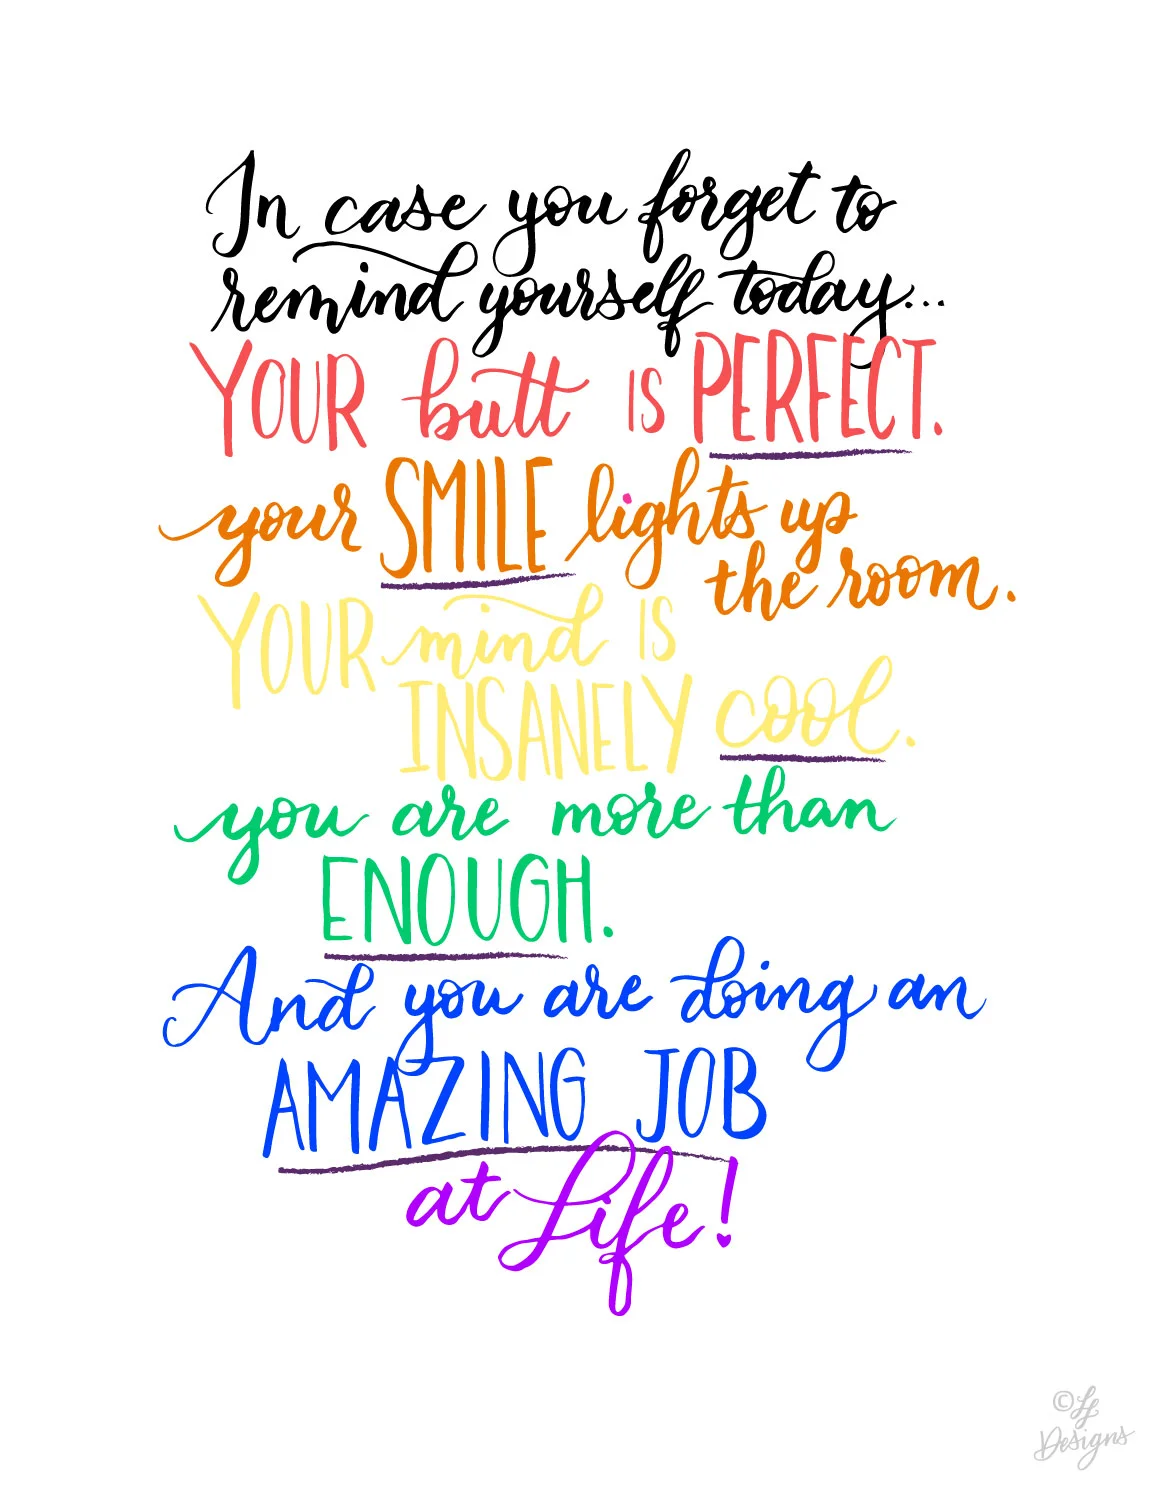 In case you forget to
remind yourself today...
YOUR butt is PERFECT.
your SMILE lights up
the room.
YOUR mind is
INSANELY cool.
you are more than
ENOUGH.
And you are doing an
AMAZING JOB
at Life!
© LL
Designs